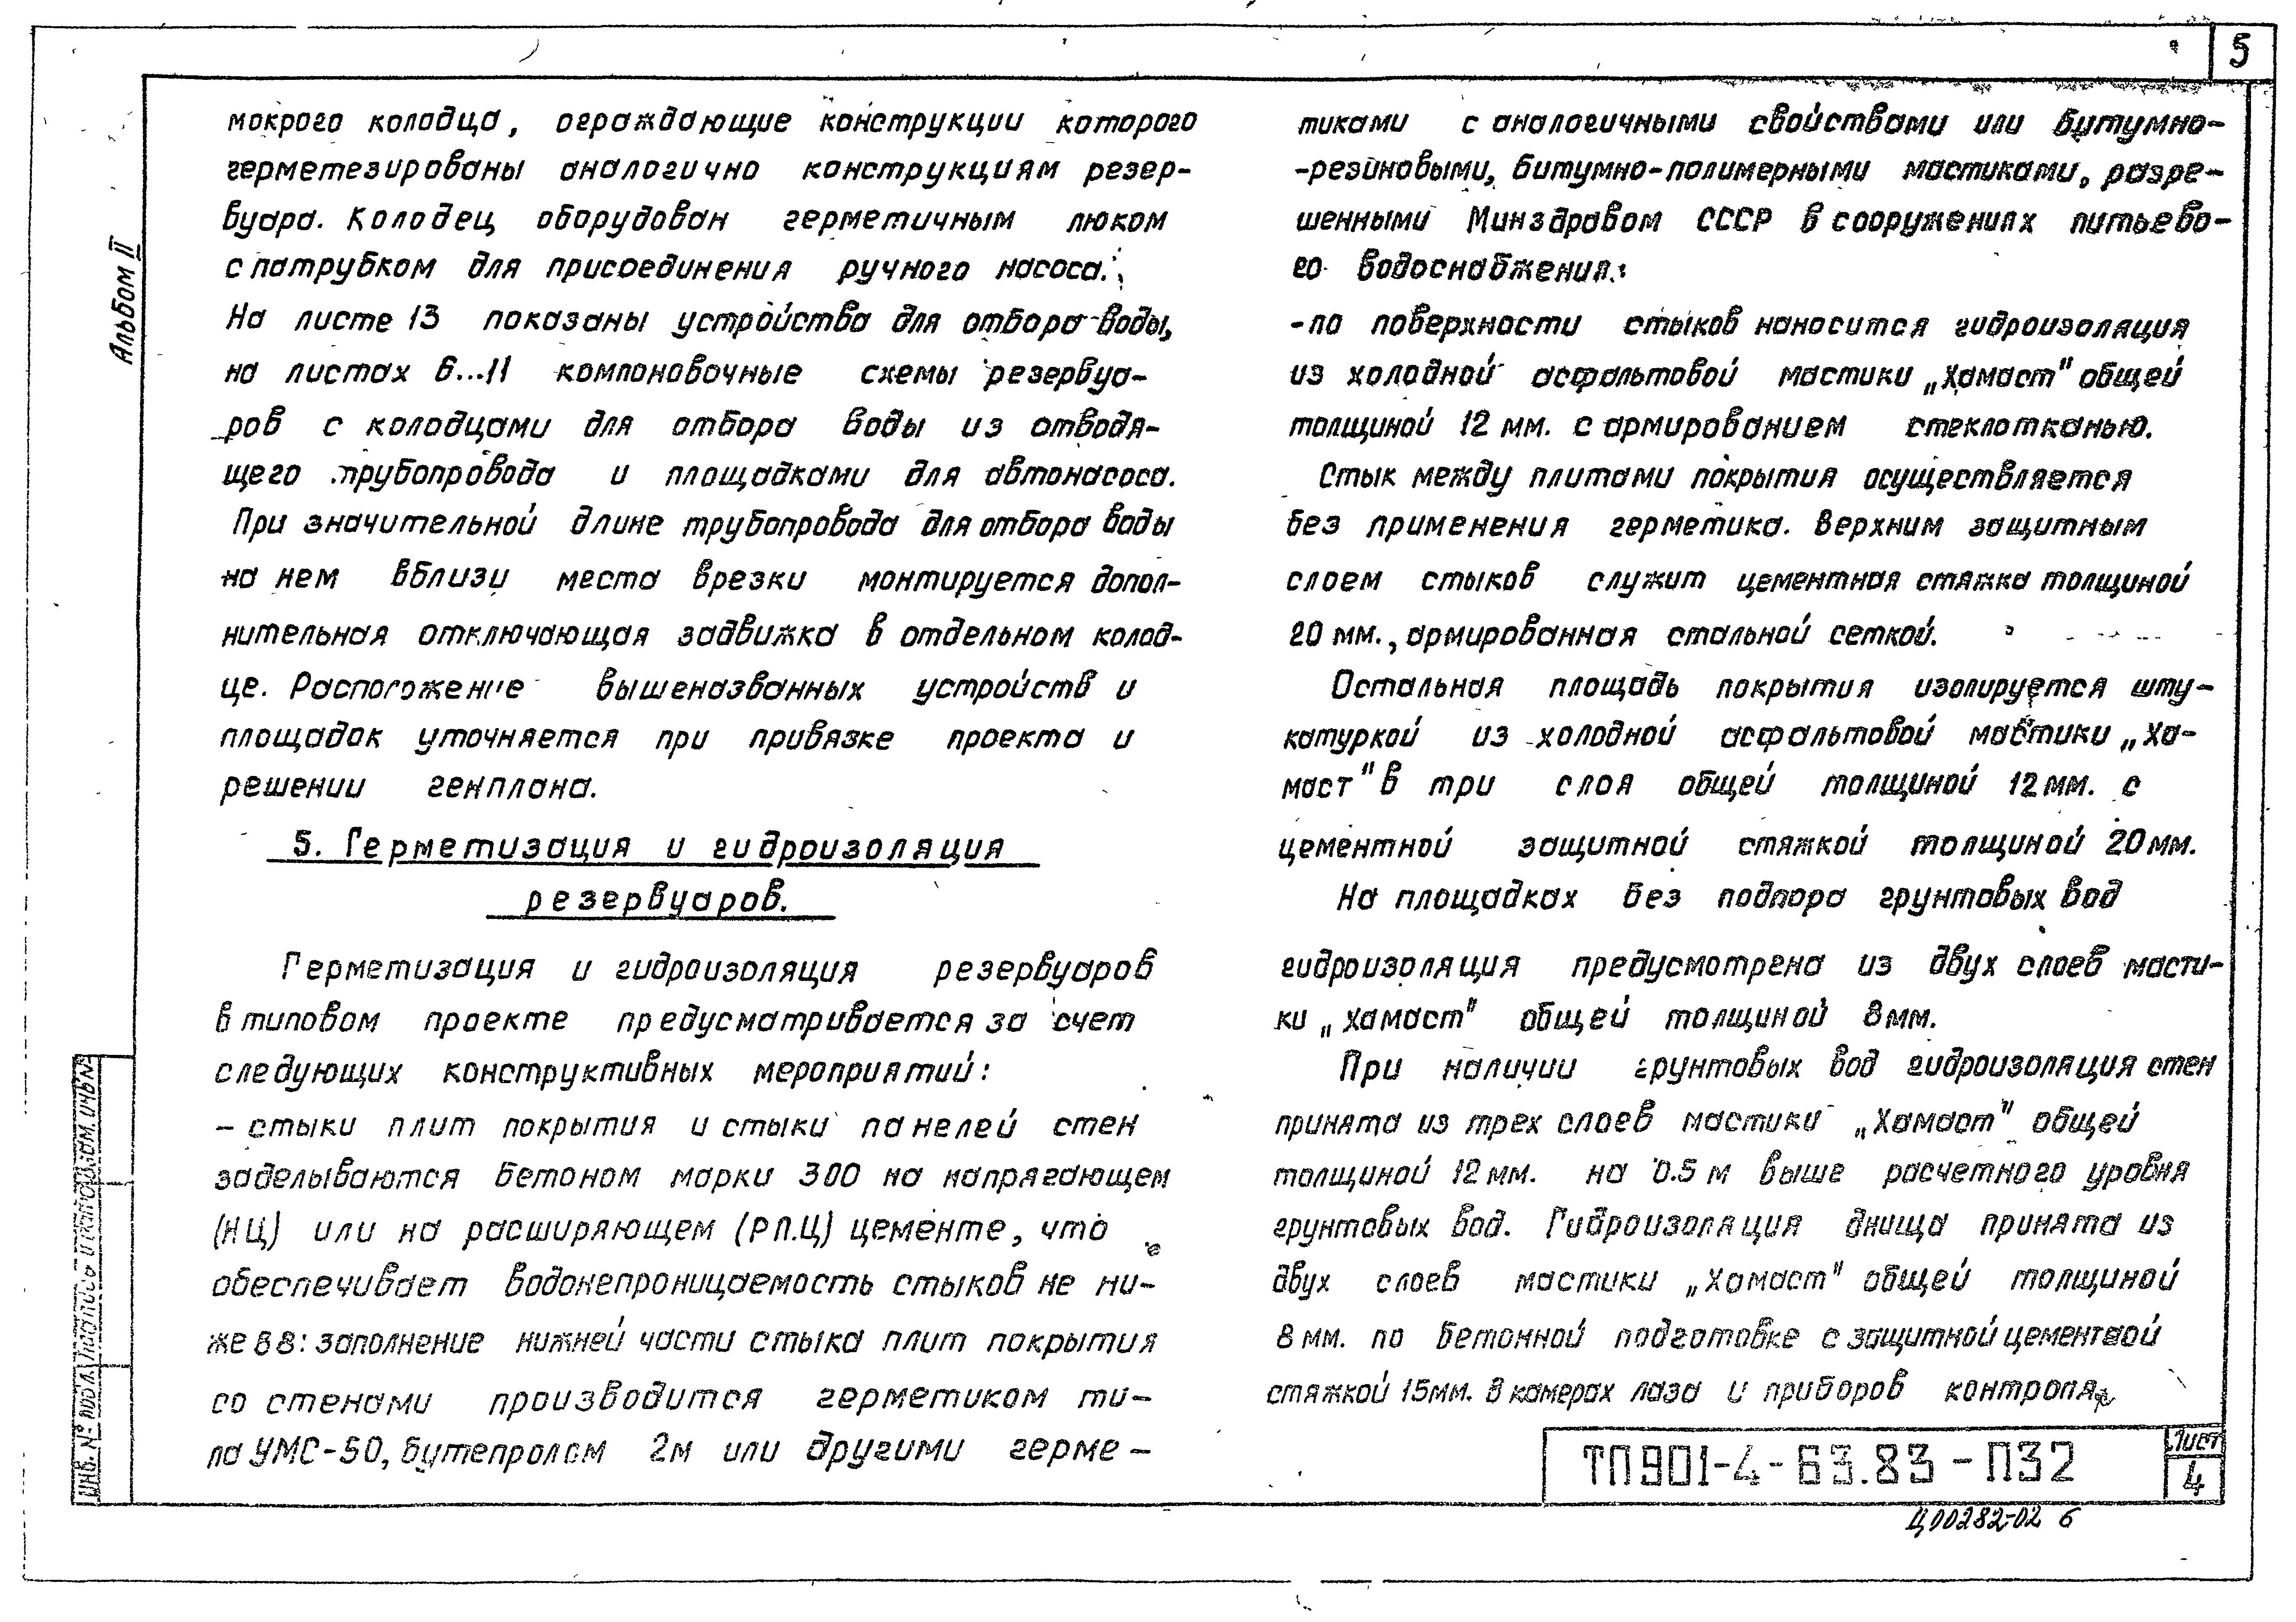 5
Альбом II
мокрого колодца, ограждающие конструкции которого
герметезированы аналогично конструкциям резер-
вуара. Колодец оборудован герметичным люком
с патрубком для присоединения ручного насоса.
На листе 13 показаны устройства для отбора воды,
на листах 6...11 компоновочные схемы резервуа-
ров с колодцами для отбора воды из отводя-
щего трубопровода и площадками для автонасоса.
При значительной длине трубопровода для отбора воды
на нем вблизи места врезки монтируется допол-
нительная отключающая задвижка в отдельном колод-
це. Расположение вышеназванных устройств и
площадок уточняется при привязке проекта и
решении генплана.
5. Герметизация и гидроизоляция
резервуаров.
Герметизация и гидроизоляция резервуаров
в типовом проекте предусматривается за счет
следующих конструктивных мероприятий:
- стыки плит покрытия и стыки панелей стен
заделываются бетоном марки 300 на напрягающем
(НЦ) или на расширяющем (РПЦ) цементе, что
обеспечивает водонепроницаемость стыков не ни-
же В8: заполнение нижней части стыка плит покрытия
со стенами производится герметиком ти-
па УМС-50, бутепролом 2м или другими герме-
тиками с аналогичными свойствами или битумно-
-резиновыми, битумно-полимерными мастиками, разре-
шенными Минздравом СССР в сооружениях питьево-
го водоснабжения:
-по поверхности стыков наносится гидроизоляция
из холодной асфальтовой мастики „Хамаст" общей
толщиной 12 мм. с армированием стеклотканью.
Стык между плитами покрытия осуществляется
без применения герметика. Верхним защитным
слоем стыков служит цементная стяжка толщиной
20 мм., армированная стальной сеткой.
Остальная площадь покрытия изолируется шту-
катуркой из холодной асфальтовой мастики „Ха-
маст" в три слоя общей толщиной 12 мм. с
цементной защитной стяжкой толщиной 20 мм.
На площадках без подпора грунтовых вод
гидроизоляция предусмотрена из двух слоев масти-
ки „Хамаст" общей толщиной 8 мм.
При наличии грунтовых вод гидроизоляция стен
принята из трех слоев мастики „Хамаст" общей
толщиной 12 мм. на 0.5 м выше расчетного уровня
грунтовых вод. Гидроизоляция днища принята из
двух слоев мастики „Хамаст" общей толщиной
8 мм. по бетонной подготовке с защитной цементной
стяжкой 15мм. В камерах лаза и приборов контроля,
Инв. № подл. Подпись и дата Взам. инв №
ТП 901-4-63.83-ПЗ2
Лист
4
Ц00282-02 6